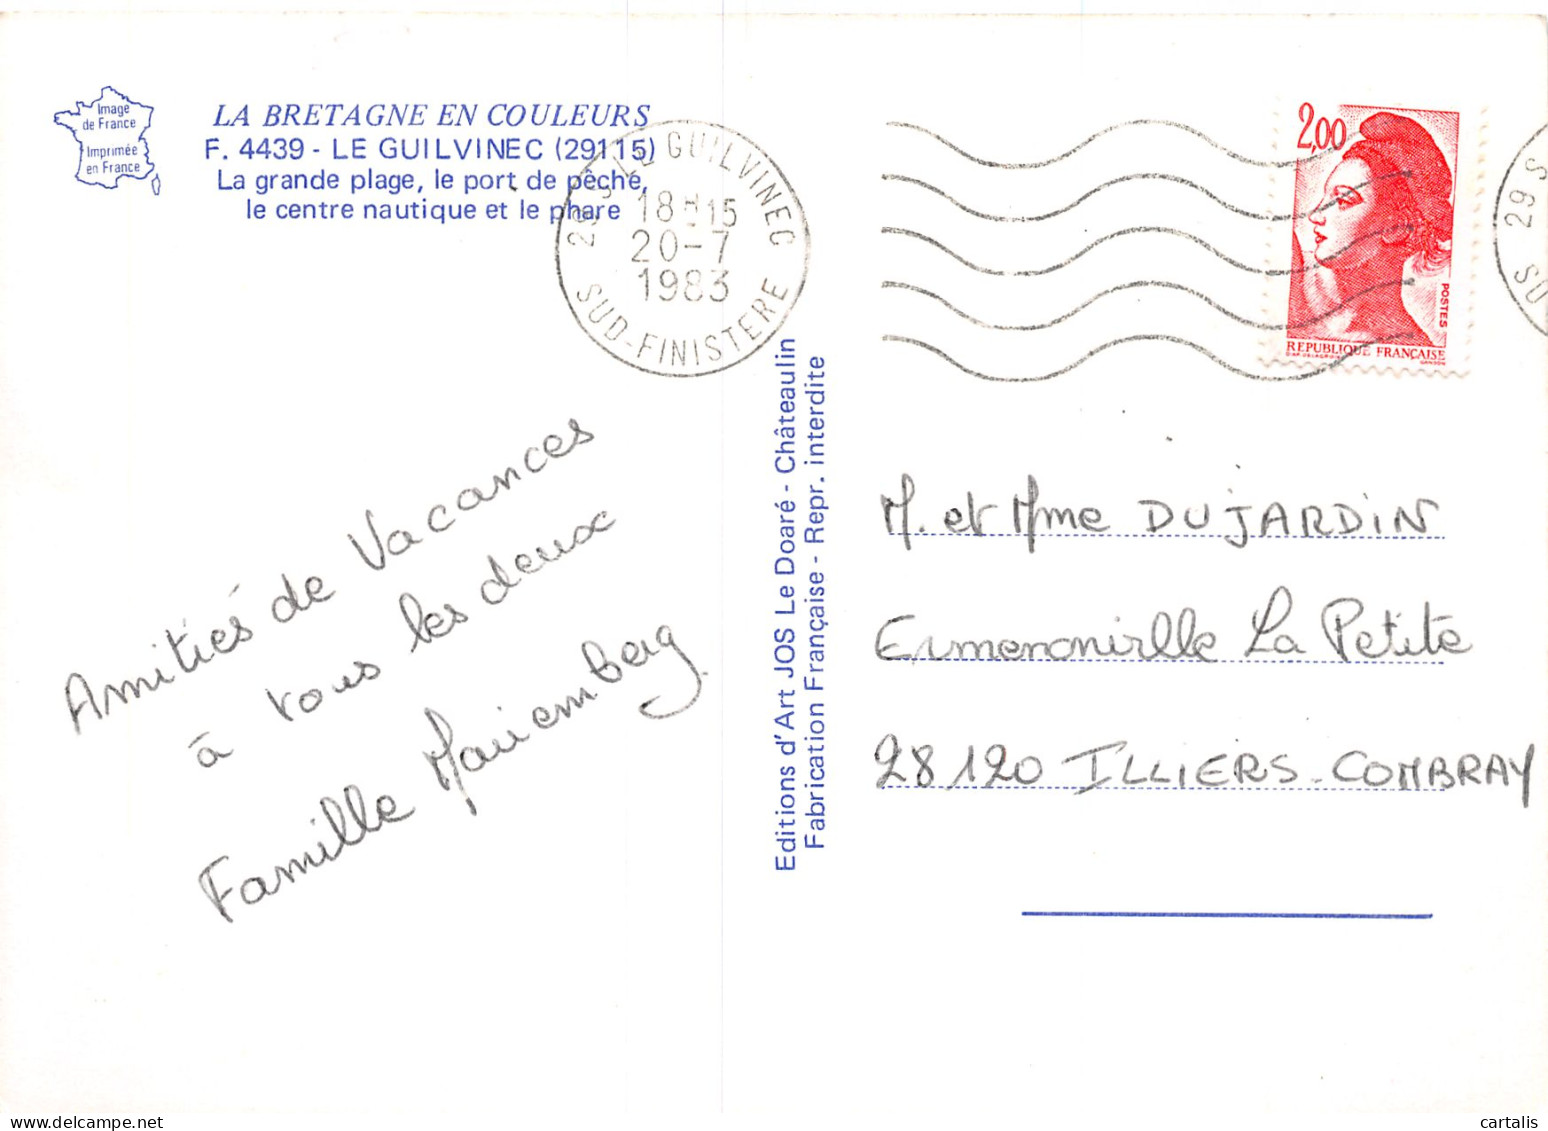 Image
de France
Imprimée
en France
LA BRETAGNE EN COULEURS
F. 4439 - LE GUILVINEC (29115)
La grande plage, le port de pêche,
le centre nautique et le phare
29 S LE GUILVINEC
18H15
20-7
1983
SUD-FINISTERE
2,00
POSTES
REPUBLIQUE FRANÇAISE
29 S
SU
Amitiés de Vacances
à vous les deux
Famille Mariemberg
Editions d'Art JOS Le Doaré - Châteaulin
Fabrication Française - Repr. interdite
M. et Mme DUJARDIN
Ermenonville La Petite
28120 ILLIERS-COMBRAY
cartalis